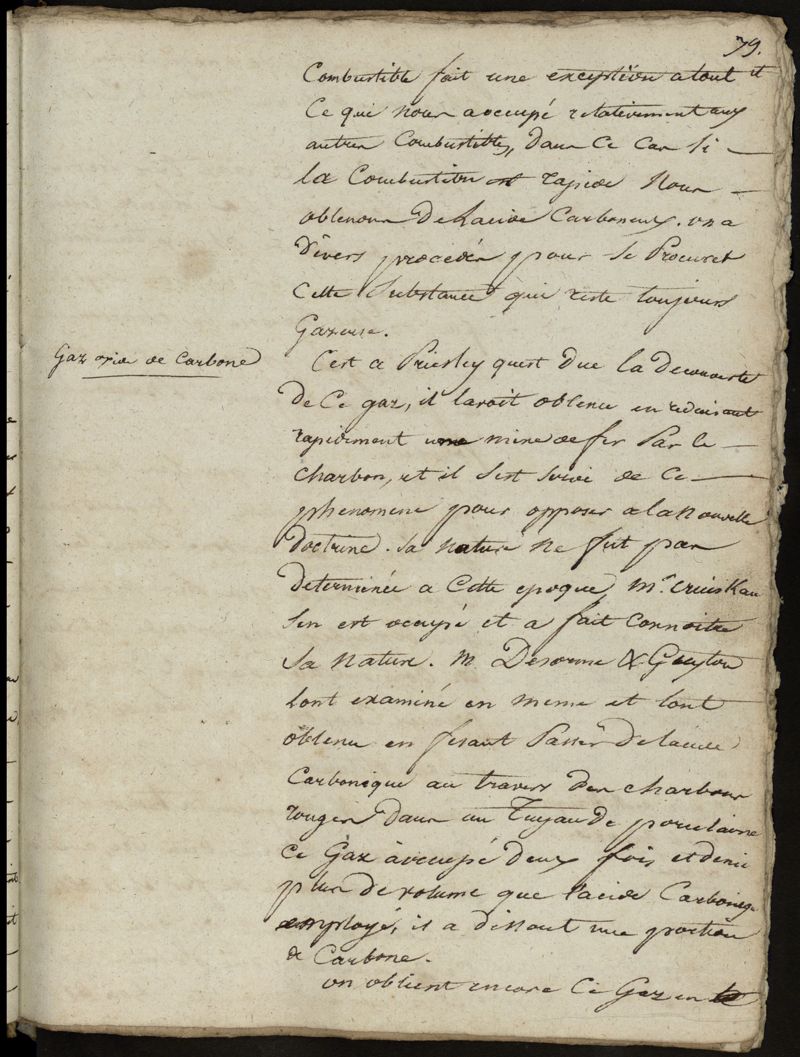 79.
Combustible fait une exception a tout et
Ce qui nous a occupé relativement aux
autres Combustibles, dans Ce Cas si
la Combustion est rapide Nous
obtenons de Lacide Carboneux. on a
divers procédés pour se Procurer
Cette Substance qui reste toujours
Gazeuse.
Gaz oxide de Carbone
C'est a Priesley quest Due la Decouverte
de Ce gaz, il lavoit obtenu en reduisant
rapidement une mine de fer Par le
charbon, et il sest servi de Ce
phenomene pour opposer a la Nouvelle
doctrine. sa nature ne fut pas
determinée a Cette epoque, Mr. Cruiskan
sen est occupé et a fait Connoitre
sa nature. M Desorme & Guyton
lont examiné en meme et lont
obtenu en fesant Passer De lacide
Carbonique au travers des charbons
rouges dans un Tuyau De porcelaine
Ce Gaz a occupé deux fois et demie
plus de volume que l'acide Carbonique
employé, il a dissout une portion
de Carbone.
on obtient encore Ce Gaz en